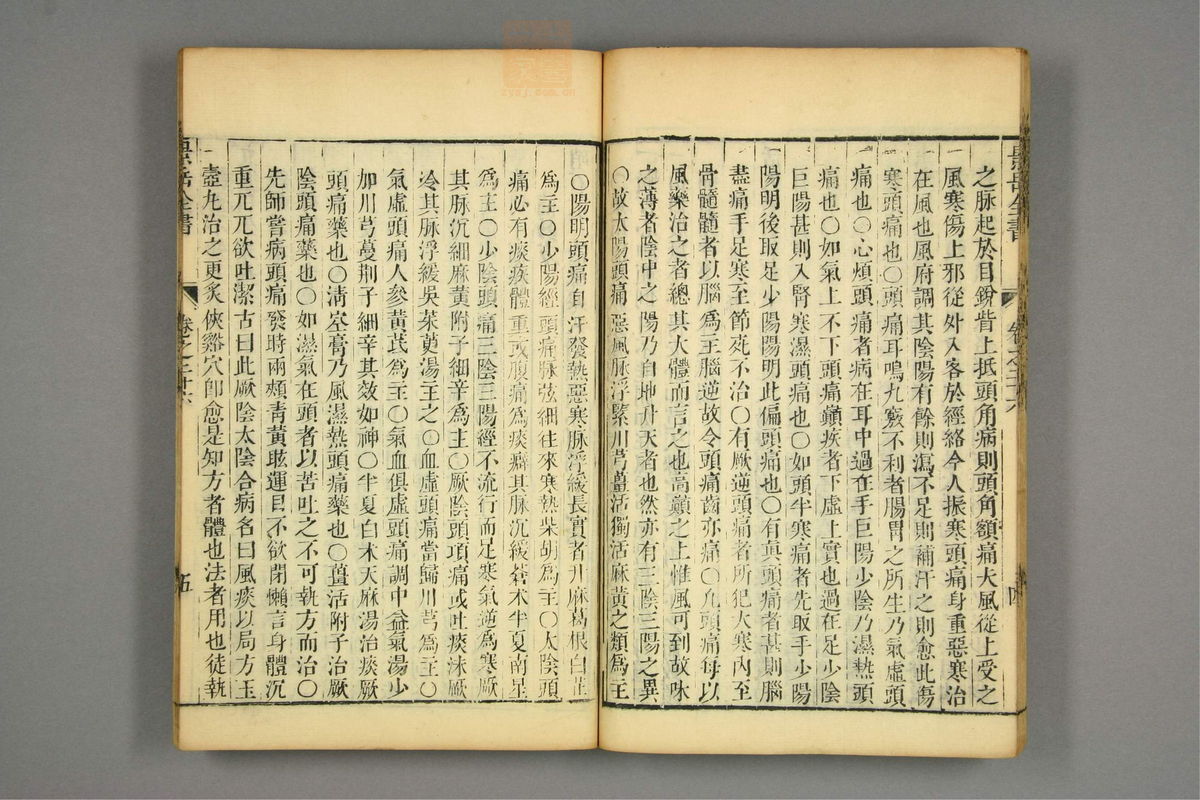 景岳全書
卷之二十六
四
之脉起於目銳眥上抵頭角病則頭角額痛大風從上受之
風寒傷上邪從外入客於經絡令人振寒頭痛身重惡寒治
在風也風府調其陰陽有餘則瀉不足則補汗之則愈此傷
寒頭痛也○頭痛耳鳴九竅不利者腸胃之所生乃氣虛頭
痛也○心煩頭痛者病在耳中過在手巨陽少陰乃濕熱頭
痛也○如氣上不下頭痛巔疾者下虛上實也過在足少陰
巨陽甚則入腎寒濕頭痛也○如頭半寒痛者先取手少陽
陽明後取足少陽陽明此偏頭痛也○有眞頭痛者甚則腦
盡痛手足寒至節死不治○有厥逆頭痛者所犯大寒內至
骨髓髓者以腦爲主腦逆故令頭痛齒亦痛○凡頭痛每以
風藥治之者總其大體而言之也高巔之上惟風可到故味
之薄者陰中之陽乃自地升天者也然亦有三陰三陽之異
○故太陽頭痛惡風脉浮緊川芎羌活獨活麻黃之類爲主
○陽明頭痛自汗發熱惡寒脉浮緩長實者升麻葛根白芷
爲主○少陽經頭痛脉弦細往來寒熱柴胡爲主○太陰頭
痛必有痰疾體重或腹痛爲痰癖其脉沉緩蒼术半夏南星
爲主○少陰頭痛三陰三陽經不流行而足寒氣逆爲寒厥
其脉沉細麻黃附子細辛爲主○厥陰頭項痛或吐痰沫厥
冷其脉浮緩吳茱萸湯主之○血虛頭痛當歸川芎爲主○
氣虛頭痛人參黃芪爲主○氣血俱虛頭痛調中益氣湯少
加川芎蔓荆子細辛其效如神○半夏白术天麻湯治痰厥
頭痛藥也○淸空膏乃風濕熱頭痛藥也○羌活附子治厥
陰頭痛藥也○如濕氣在頭者以苦吐之不可執方而治○
先師嘗病頭痛發時兩頰靑黃眩運目不欲閉懶言身體沉
重兀兀欲吐潔古曰此厥陰太陰合病名曰風痰以局方玉
壺丸治之更炙俠谿穴卽愈是知方者體也法者用也徒執
景岳全書
卷之二十六
五